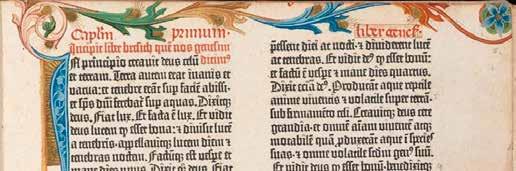 Caplm primum·
Incipit liber bresich quē nos genesim
dicimꝰ
IN principio creavit deus celū
et terram. Terra autem erat inanis et
vacua: et tenebre erāt sup faciē abissi:
et spūs dñi ferebat sup aquas. Dixitqꝫ
deus. Fiat lux. Et facta ē lux. Et vidit
deus lucem qꝫ esset bona: et divisit lucē
a tenebris. appellavitqꝫ lucem diem et
tenebras noctem. Factūqꝫ est vespe et
mane dies unus. Dixit qꝫ deus. Fiat
liber genes·
preessent diei ac nocti: et dividerent lucē
ac tenebras. Et vidit deꝰ qꝫ esset bonū:
et factū ē vespe et mane dies quartus.
Dixit etiā deꝰ. Producāt aque reptile
anime viventis et volatile super terrā:
sub firmamēto celi. Creavitqꝫ deus cete
grandia. et omnē aīam viventē atqꝫ
motabilē quā pduxerāt aque ī species
suas: et omne volatile scdm genꝰ suū.
Et vidit deus qꝫ esset bonū. Benedixit